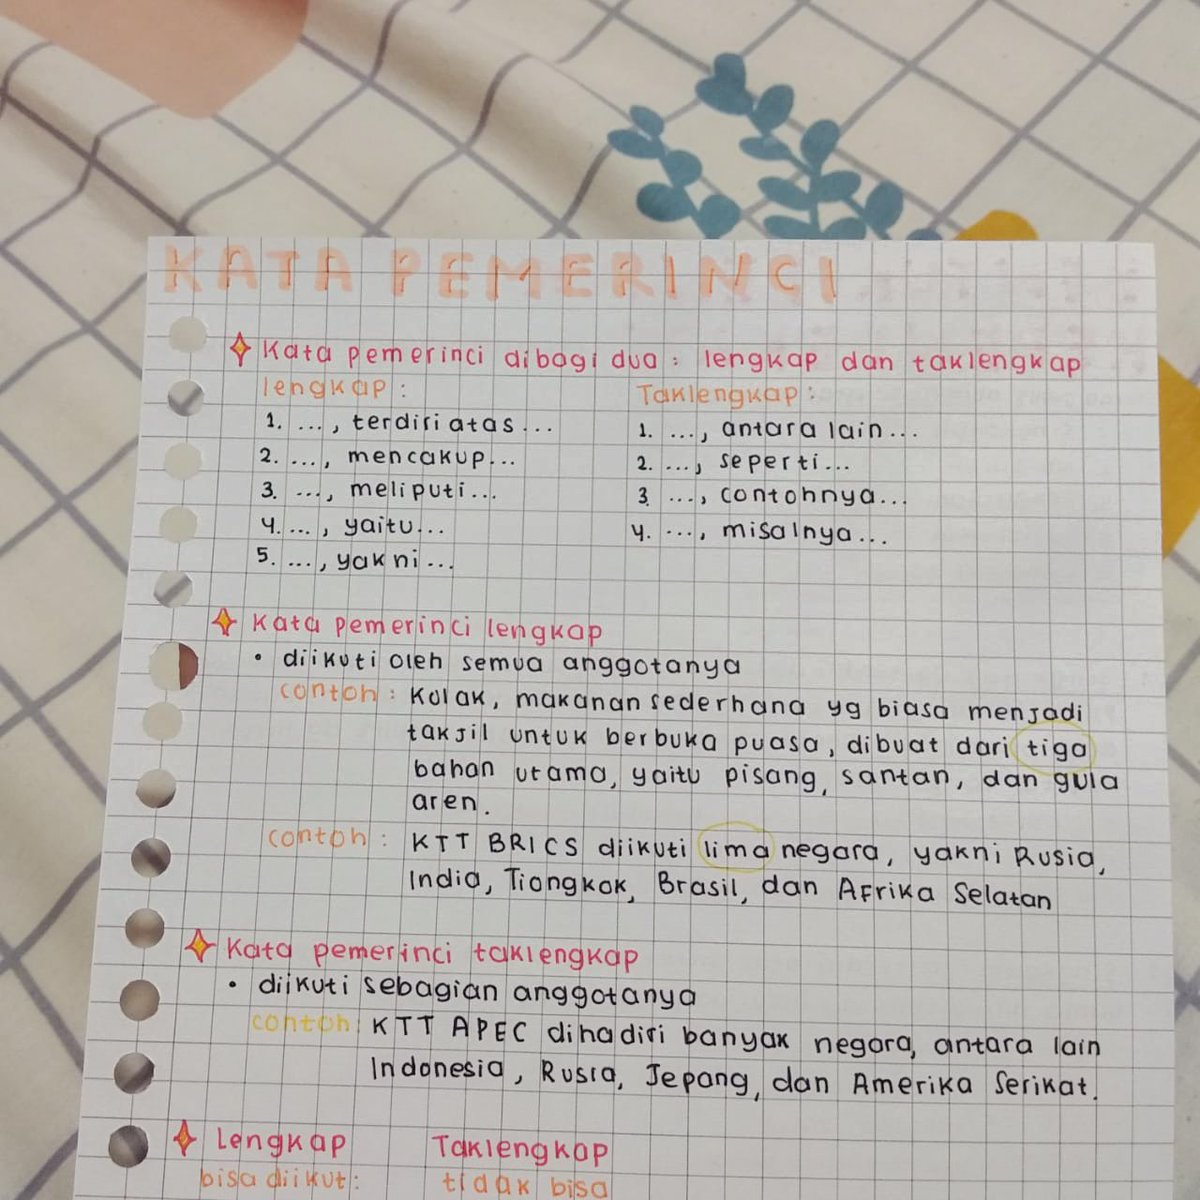 KATA PEMERINCI
Kata pemerinci dibagi dua : lengkap dan taklengkap
lengkap :
1. ..., terdiri atas ...
2. ..., mencakup...
3. ..., meliputi...
4. ..., yaitu...
5. ..., yakni...
Taklengkap :
1. ..., antara lain...
2. ..., seperti...
3. ..., contohnya...
4. ..., misalnya...
Kata pemerinci lengkap
• diikuti oleh semua anggotanya
contoh : Kolak, makanan sederhana yg biasa menjadi
takjil untuk berbuka puasa, dibuat dari tiga
bahan utama, yaitu pisang, santan, dan gula
aren.
contoh : KTT BRICS diikuti lima negara, yakni Rusia,
India, Tiongkok, Brasil, dan Afrika Selatan
Kata pemerinci taklengkap
• diikuti sebagian anggotanya
contoh : KTT APEC dihadiri banyak negara, antara lain
Indonesia, Rusia, Jepang, dan Amerika Serikat.
Lengkap
bisa diikut:
Taklengkap
tidak bisa